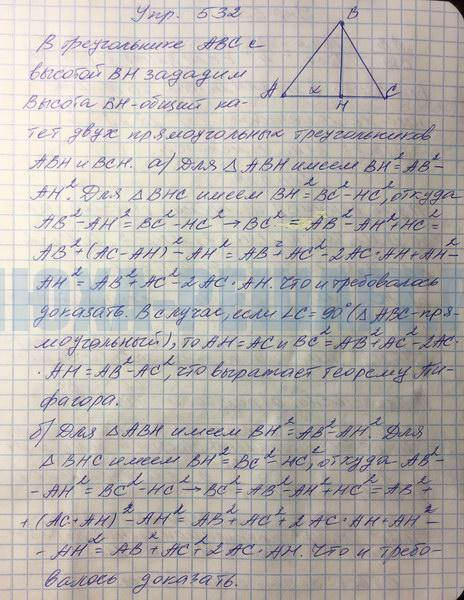 Упр. 532
В треугольнике ABC с
высотой BH зададим
Высота BH - общий ка-
тет двух прямоугольных треугольников
ABH и BCH. а) Для △ABH имеем BH²=AB²-
AH². Для △BHC имеем BH²=BC²-HC², откуда
AB²-AH²=BC²-HC² → BC² = AB²-AH²+HC²=
AB²+(AC-AH)²-AH²=AB²+AC²-2AC·AH+AH²-
AH²=AB²+AC²-2AC·AH. Что и требовалось
доказать. В случае, если ∠C=90° (△ABC-пря-
моугольный), то AH=AC и BC²=AB²+AC²-2AC·
·AH=AB²-AC², что выражает теорему Пи-
фагора.
б) Для △ABH имеем BH²=AB²-AH². Для
△BHC имеем BH²=BC²-HC², откуда AB²-
-AH²=BC²-HC² → BC²=AB²-AH²+HC²=AB²+
+(AC+AH)²-AH²=AB²+AC²+2AC·AH+AH²-
-AH²=AB²+AC²+2AC·AH. Что и требо-
валось доказать.
B
A
x
H
C